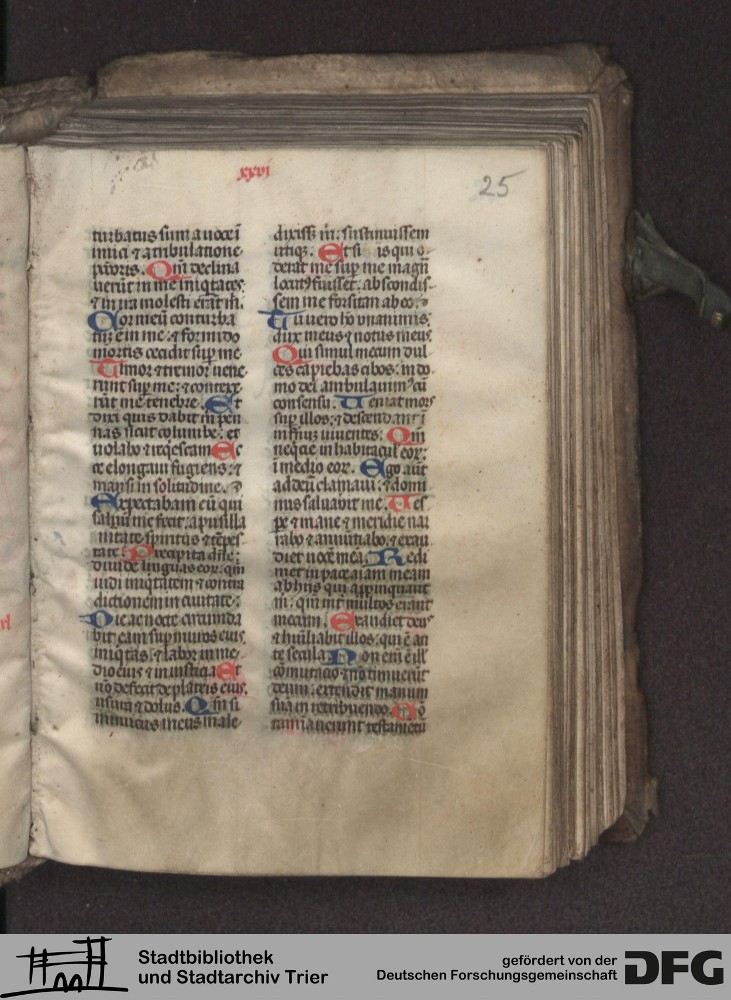 xxvi
25
turbatus sum a uoce i
imici ⁊ a tribulatione
p̄c̄oris. Qm̄ declina
uerūt in me iniq̄tates
⁊ in ira molesti erāt m̄.
Cor meū conturba
tū ē in me: ⁊ formido
mortis cecidit sup̄ me
Timor ⁊ tremor uene
runt sup̄ me: ⁊ contexe
rūt me tenebre. Et
dixi quis dabit m̄ pen
nas sicut columbe: et
uolabo ⁊ req̇escam Ec
ce elongaui fugiens: ⁊
mansi in solitudine. ⁊
Expectabam eū qui
saluū me fecit: a pusilla
nimitate spiritus ⁊ tēpes
tate. Precipita dn̄e:
diuide linguas eor: qm̄
uidi iniq̄tatem ⁊ contra
dictionem in ciuitate:
Die ac nocte circumda
bit eam sup̄ muros eius
iniq̄tas: ⁊ labor in me
dio eius ⁊ iniusticia Et
nō defecit de plateis eius:
usura ⁊ dolus. Qm̄ si
inimicus meus male
dixiss; m̄: sustinuissem
utiq;. Et si is qui o
derat me sup̄ me magn̄
locut' fuisset: abscondis
sem me forsitan ab eo. ⁊
Tu uero hō unanimis:
dux meus ⁊ notus meus
Qui simul mecum dul
ces capiebas cibos: in do
mo dei ambulauim' cū
consensu. Ueniat mors
sup̄ illos: ⁊ descendant i
infernū uiuentes. Qm̄
neq̇cie in habitacul' eor:
i medio eor. Ego aūt
ad deū clamaui: ⁊ domi
nus saluauit me. Ues
pe ⁊ mane ⁊ meridie nar
rabo ⁊ annūtiabo: ⁊ exau
diet uocē meā. Redi
met in pace aīam meam
ab hiis qui app̄inquant
m̄: qm̄ int̄ multos erant
mecum. Exaudiet deus
⁊ humiliabit illos: qui ē an
te secula Non em̄ ē ill'
cōmutacio ⁊ nō timuerūt
deum: extendit manum
suā in retribuendo. Cō
taminauerunt testamentū
Stadtbibliothek
und Stadtarchiv Trier
gefördert von der
Deutschen Forschungsgemeinschaft
DFG